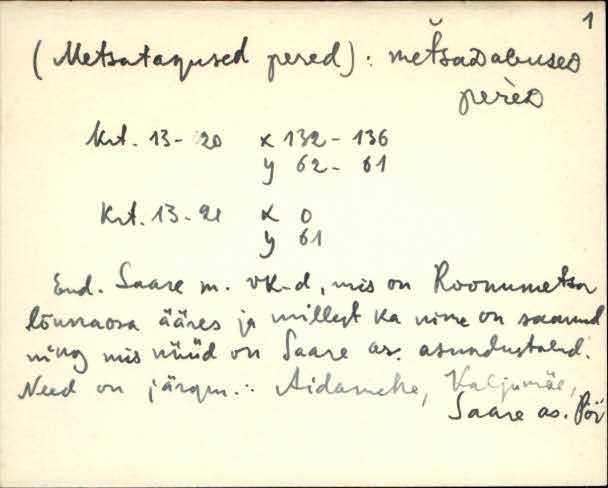 1
(Metsatagused pered): metsaDabuseD
pereD
Krt. 13-20 x 132-136
y 62-61
Krt. 13-21 x 0
y 61
End. Saare m. vk-d, mis on Roonumetsa
lõunaosa ääres ja millest ka nime on saanud
ning mis nüüd on Saare as. asundustalud.
Need on järgm.: Aidamehe, Kaljumäe,
Saare as. Pöi